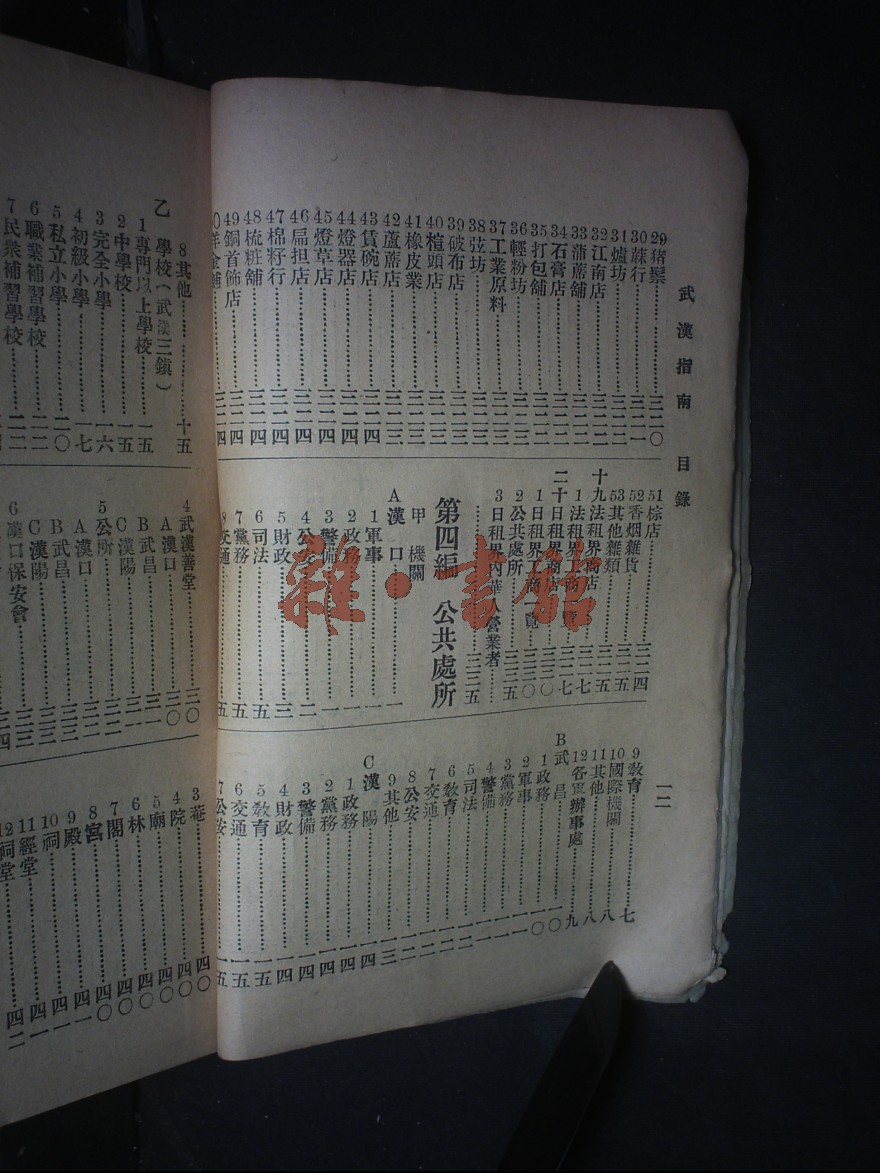 武漢指南 目錄
一二
29猪鬃……三二〇
30蔴行……三二一
31爐坊……三二二
32江南店……三二二
33蒲蓆舖……三二二
34石膏店……三二二
35打包舖……三二二
36輕粉坊……三二三
37工業原料……三二三
38弦坊……三二三
39破布店……三二三
40楦頭店……三二三
41橡皮業……三二三
42蘆蓆店……三二三
43賃碗店……三二四
44燈器店……三二四
45燈草店……三二四
46扁担店……三二四
47棉籽行……三二四
48梳粧舖……三二四
49銅首飾店……三二四
51棕店……三二四
52香烟雜貨……三二五
53其他雜類……三二五
十九法租界商店……三二七
1法租界商一覽……三二七
二十日租界商店……三三〇
1日租界工商一覽……三三〇
2公共處所……三三五
3日租界內華人營業者……三三五
第四編 公共處所
甲 機關
A漢 口……一
1軍事……一
2政務……一
3警備……一
4公安……二
5財政……三
6司法……五
7黨務……五
8交通……五
9教育……七
10國際機關……八
11其他……八
12各軍辦事處……九
B武 昌……一〇
1政務……一〇
2軍事……一一
3黨務……一一
4警備……一一
5司法……一二
6教育……一二
7交通……一二
8公安……一二
9其他……一三
C漢 陽……一四
1政務……一四
2黨務……一四
3警備……一四
4財政……一四
5教育……一五
6交通……一五
7公安……一五
8其他……十五
乙 學校(武漢三鎮)
1專門以上學校……一五
2中學校……一五
3完全小學……一六
4初級小學……一七
5私立小學……二〇
6職業補習學校……二二
7民衆補習學校……
4武漢善堂……三〇
A漢口……三〇
B武昌……三一
C漢陽……三二
5公所……三二
A漢口……三二
B武昌……三三
C漢陽……三三
6漢口保安會……三四
3菴……四〇
4院……四〇
5廟……四〇
6林……四〇
7閣……四〇
8宮……四〇
9殿……四一
10祠……四一
11經堂……四一
12祠堂……四二
雜·書館